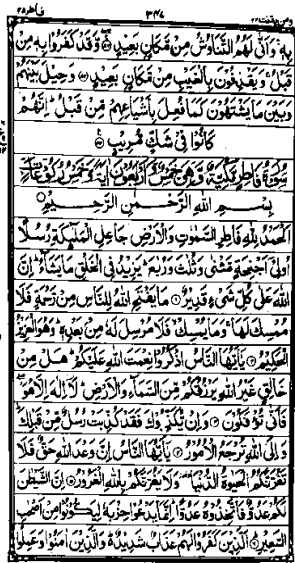 فاطر ٣٥
٣٤٧
ومن يقنت ٢٢
بِهٖ وَاَنّٰى لَهُمُ التَّنَاوُشُ مِنْ مَّكَانٍۭ بَعِيْدٍ وَقَدْ كَفَرُوْا بِهٖ مِنْ
قَبْلُ وَيَقْذِفُوْنَ بِالْغَيْبِ مِنْ مَّكَانٍۭ بَعِيْدٍ وَحِيْلَ بَيْنَهُمْ
وَبَيْنَ مَا يَشْتَهُوْنَ كَمَا فُعِلَ بِاَشْيَاعِهِمْ مِّنْ قَبْلُ اِنَّهُمْ
كَانُوْا فِيْ شَكٍّ مُّرِيْبٍ
سُوْرَةُ فَاطِرٍ مَّكِّيَّةٌ وَّهِيَ خَمْسٌ وَّاَرْبَعُوْنَ اٰيَةً وَّخَمْسُ رُكُوْعَاتٍ
بِسْمِ اللّٰهِ الرَّحْمٰنِ الرَّحِيْمِ
اَلْحَمْدُ لِلّٰهِ فَاطِرِ السَّمٰوٰتِ وَالْاَرْضِ جَاعِلِ الْمَلٰٓئِكَةِ رُسُلًا
اُولِيْٓ اَجْنِحَةٍ مَّثْنٰى وَثُلٰثَ وَرُبٰعَ يَزِيْدُ فِي الْخَلْقِ مَا يَشَآءُ اِنَّ
اللّٰهَ عَلٰى كُلِّ شَيْءٍ قَدِيْرٌ مَا يَفْتَحِ اللّٰهُ لِلنَّاسِ مِنْ رَّحْمَةٍ فَلَا
مُمْسِكَ لَهَا وَمَا يُمْسِكْ فَلَا مُرْسِلَ لَهٗ مِنْۢ بَعْدِهٖ وَهُوَ الْعَزِيْزُ
الْحَكِيْمُ يٰٓاَيُّهَا النَّاسُ اذْكُرُوْا نِعْمَتَ اللّٰهِ عَلَيْكُمْ هَلْ مِنْ
خَالِقٍ غَيْرُ اللّٰهِ يَرْزُقُكُمْ مِّنَ السَّمَآءِ وَالْاَرْضِ لَآ اِلٰهَ اِلَّا هُوَ
فَاَنّٰى تُؤْفَكُوْنَ وَاِنْ يُّكَذِّبُوْكَ فَقَدْ كُذِّبَتْ رُسُلٌ مِّنْ قَبْلِكَ
وَاِلَى اللّٰهِ تُرْجَعُ الْاُمُوْرُ يٰٓاَيُّهَا النَّاسُ اِنَّ وَعْدَ اللّٰهِ حَقٌّ فَلَا
تَغُرَّنَّكُمُ الْحَيٰوةُ الدُّنْيَا وَلَا يَغُرَّنَّكُمْ بِاللّٰهِ الْغَرُوْرُ اِنَّ الشَّيْطٰنَ
لَكُمْ عَدُوٌّ فَاتَّخِذُوْهُ عَدُوًّا اِنَّمَا يَدْعُوْا حِزْبَهٗ لِيَكُوْنُوْا مِنْ اَصْحٰبِ
السَّعِيْرِ اَلَّذِيْنَ كَفَرُوْا لَهُمْ عَذَابٌ شَدِيْدٌ وَالَّذِيْنَ اٰمَنُوْا وَعَمِلُوا